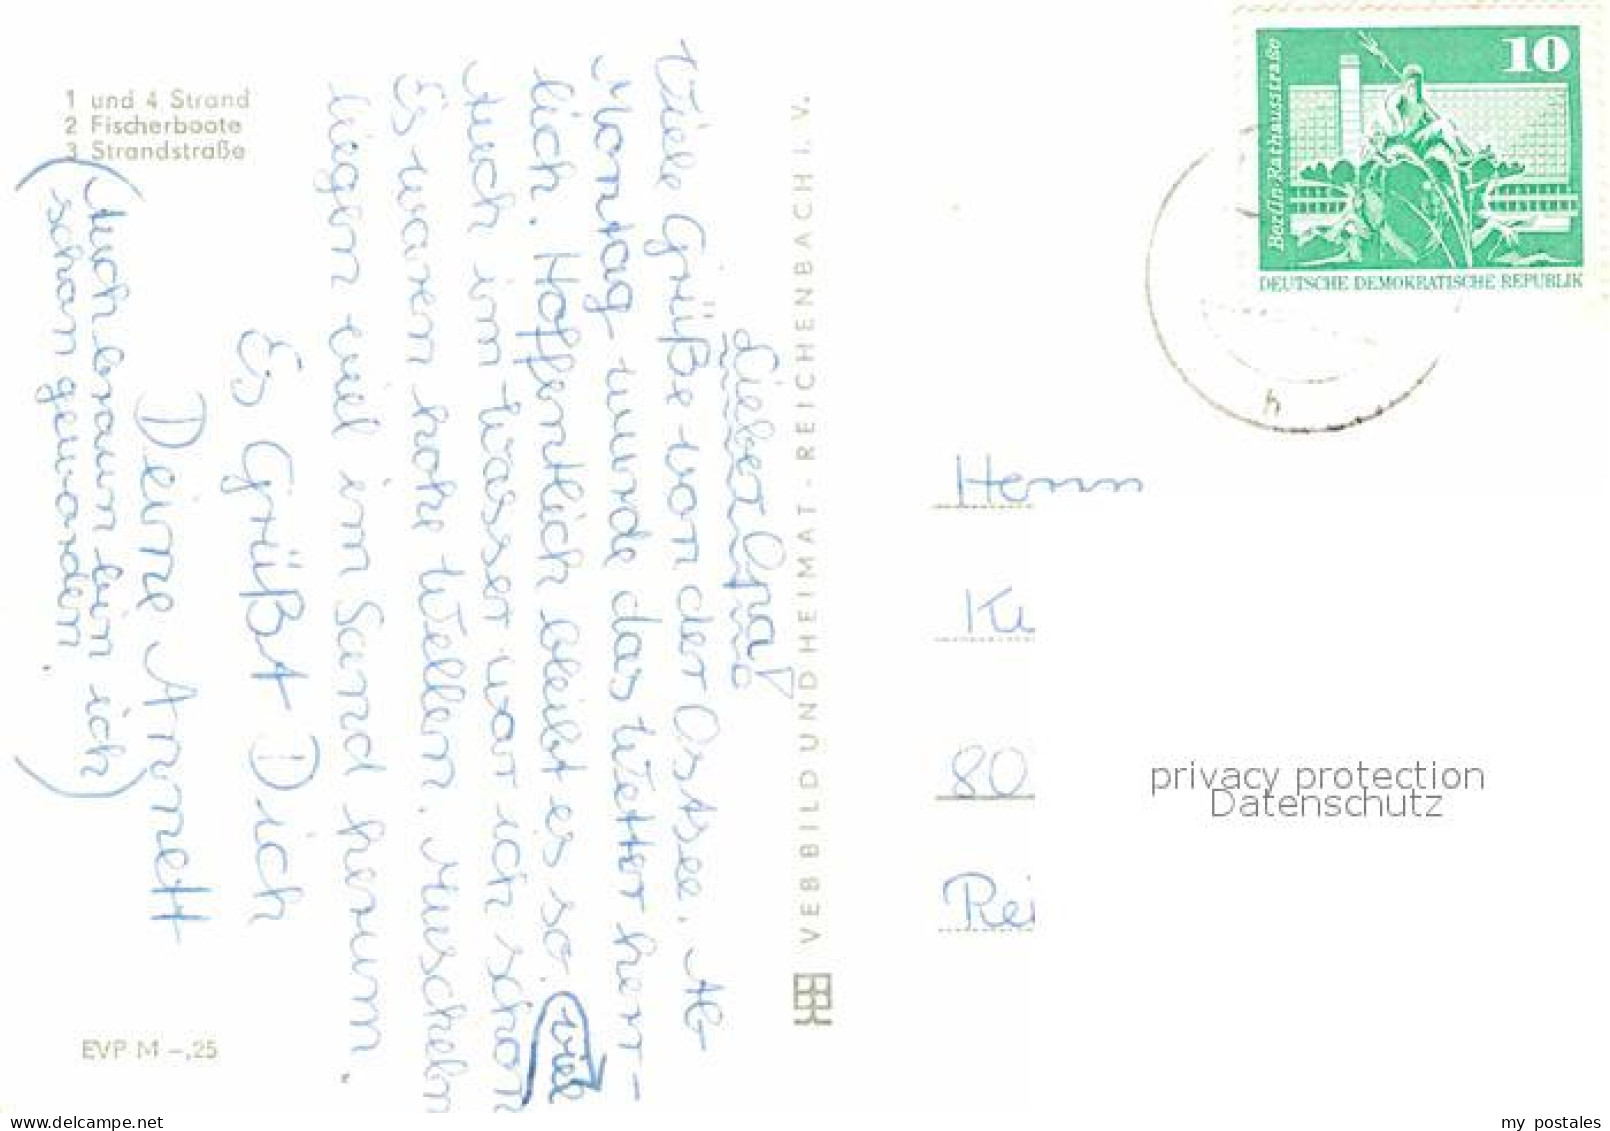 1 und 4 Strand
2 Fischerboote
3 Strandstraße
Lieber Opa!
Viele Grüße von der Ostsee. Ab
Montag wurde das Wetter herr-
lich. Hoffentlich bleibt es so.
Auch im Wasser war ich schon viel
Es waren hohe Wellen. Muscheln
liegen viel im Sand herum.
Es Grüßt Dich
Deine Annett
(Auch braun bin ich
schon geworden.)
EVP M -,25
VEB BILD UND HEIMAT · REICHENBACH I. V.
10
Berlin-Rathausstraße
DEUTSCHE DEMOKRATISCHE REPUBLIK
h
Herrn
80
Rei
privacy protection
Datenschutz
www.delcampe.net
my_postales